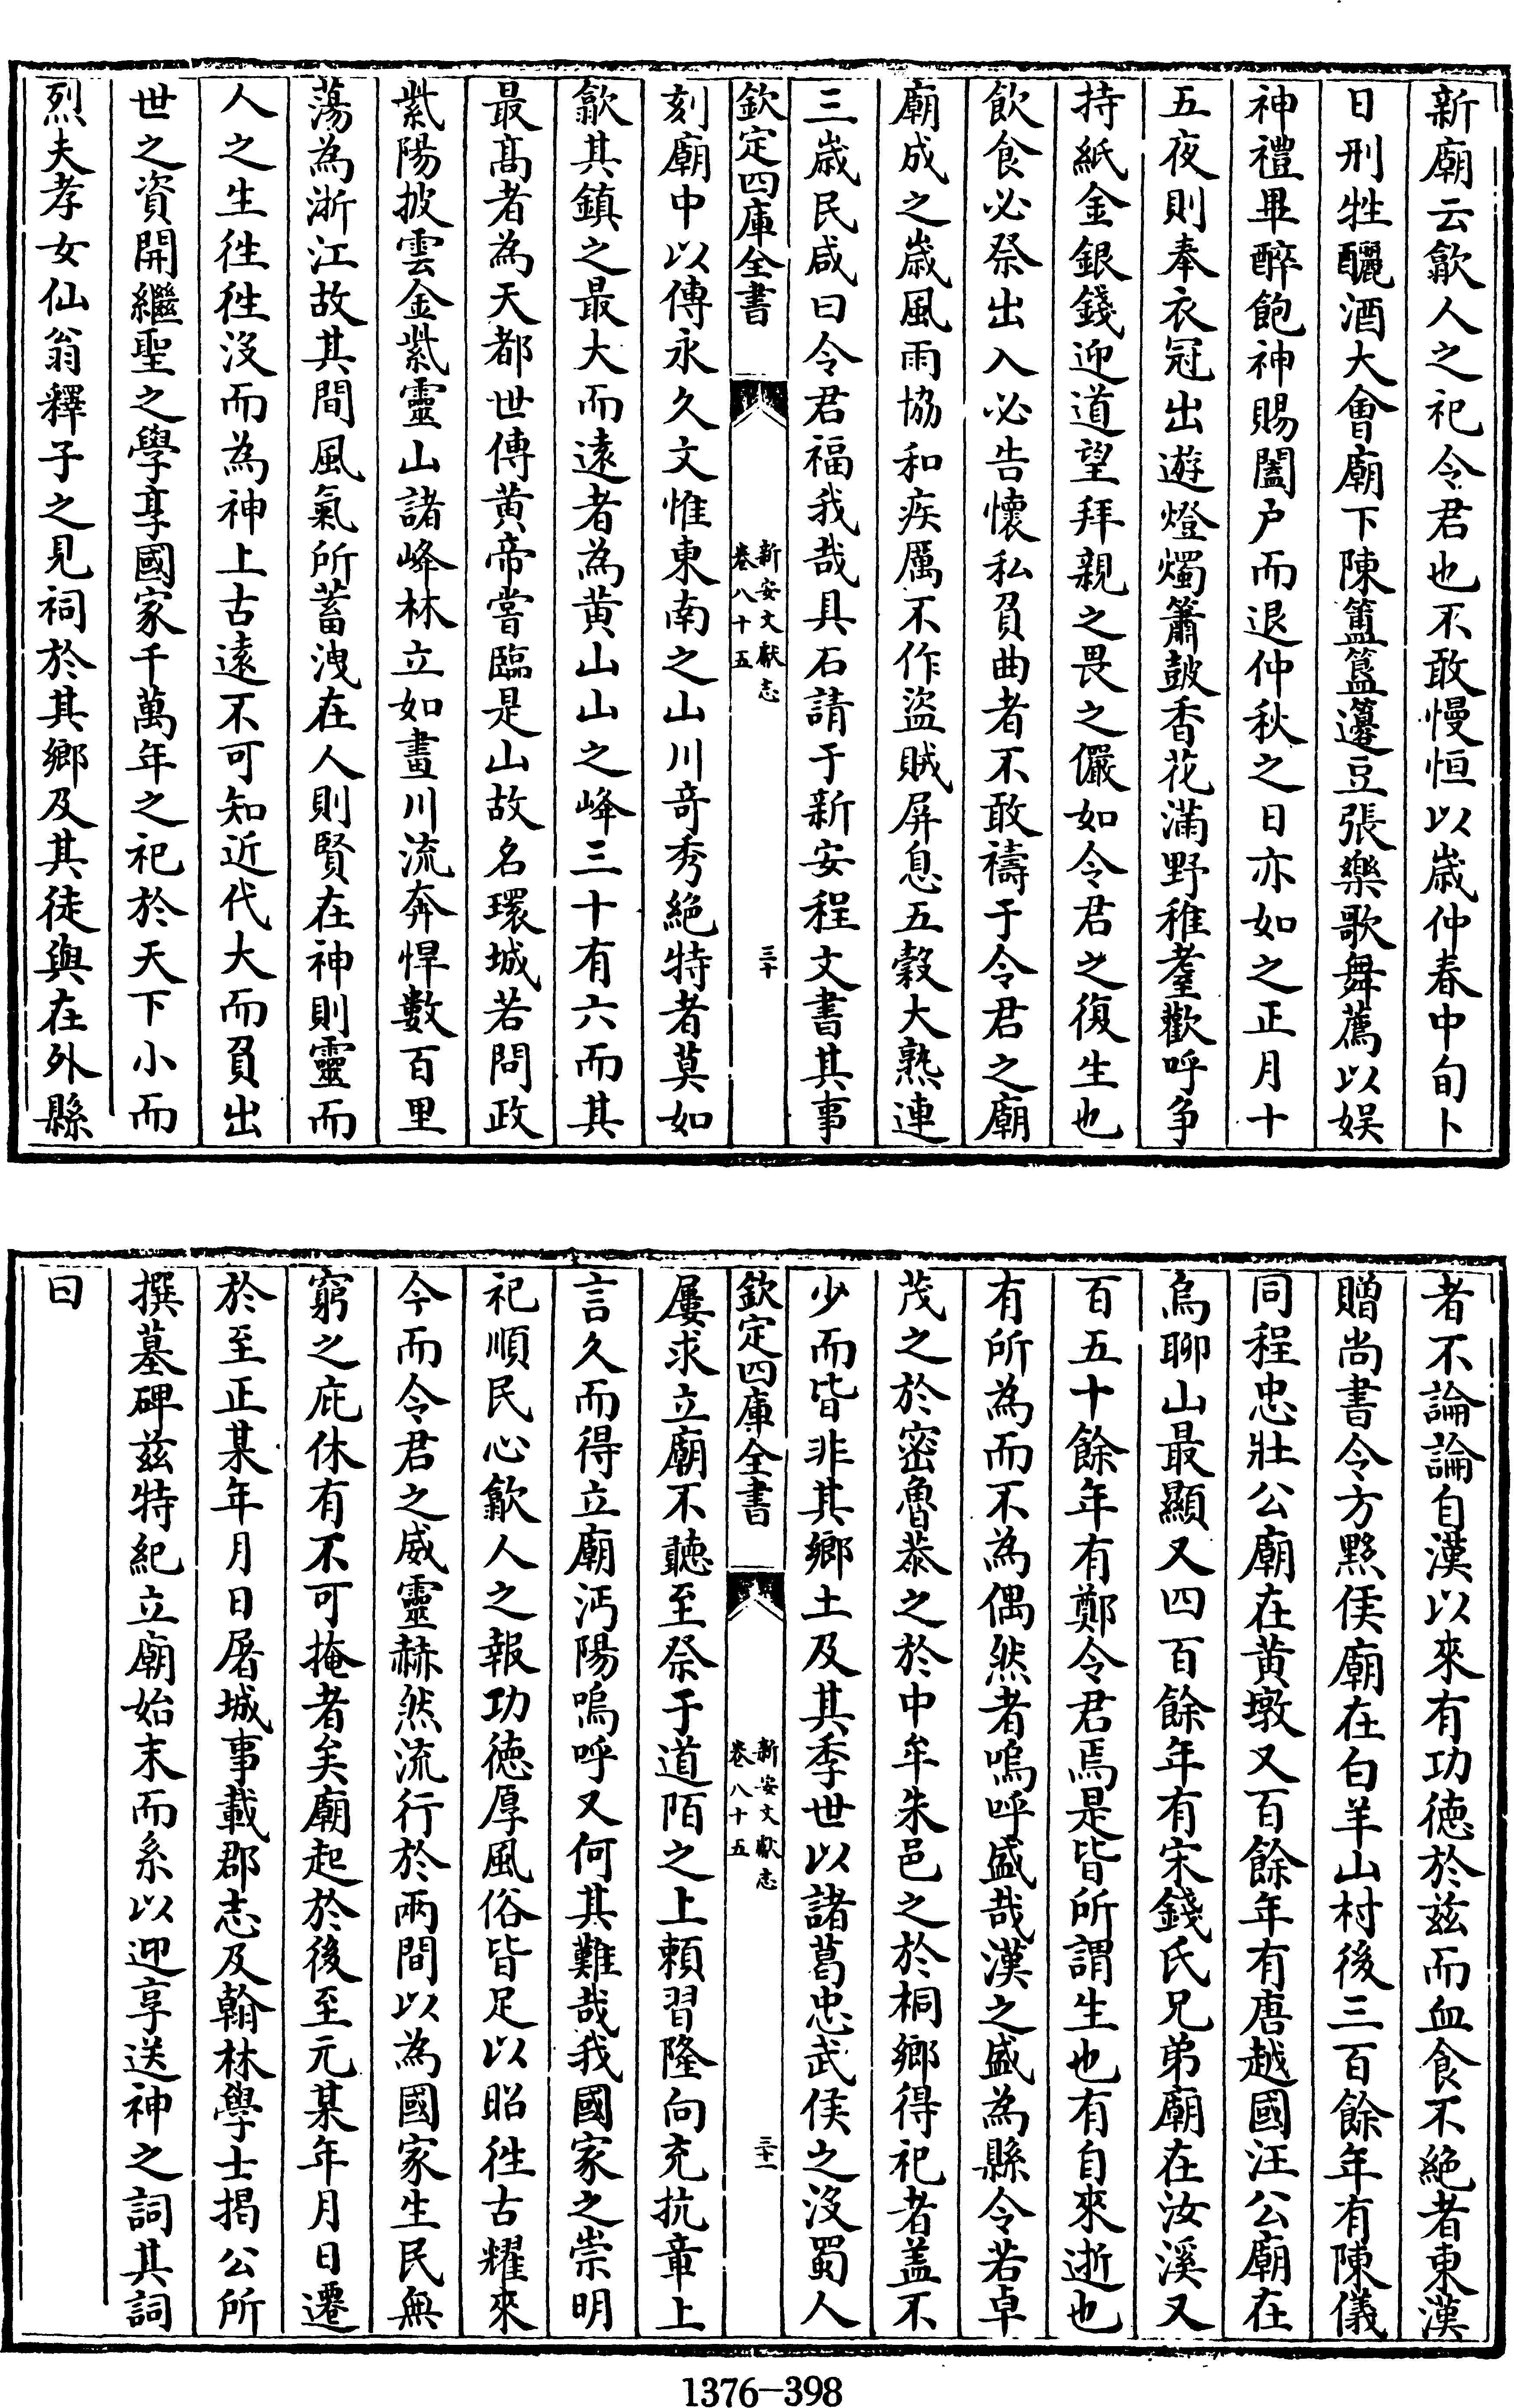 新廟云歙人之祀令君也不敢慢恒以歳仲春中旬卜
日刑牲釃酒大會廟下陳簠簋籩豆張樂歌舞薦以娱
神禮畢醉飽神賜闔户而退仲秋之日亦如之正月十
五夜則奉衣冠出遊燈燭簫鼓香花滿野稚耋歡呼争
持紙金銀錢迎道望拜親之畏之儼如令君之復生也
飲食必祭出入必告懷私負曲者不敢禱于令君之廟
廟成之歳風雨協和疾厲不作盜賊屏息五穀大熟連
三歳民咸曰令君福我哉具石請于新安程文書其事
欽定四庫全書
新安文獻志
卷八十五
三十
刻廟中以傳永久文惟東南之山川竒秀絶特者莫如
歙其鎮之最大而逺者為黄山山之峰三十有六而其
最髙者為天都世傳黄帝嘗臨是山故名環城若問政
紫陽披雲金紫靈山諸峰林立如畫川流奔悍數百里
蕩為浙江故其間風氣所蓄洩在人則賢在神則靈而
人之生徃徃沒而為神上古逺不可知近代大而負出
世之資開繼聖之學享國家千萬年之祀於天下小而
烈夫孝女仙翁釋子之見祠於其鄉及其徒與在外縣
者不論論自漢以來有功徳於兹而血食不絶者東漢
贈尚書令方黟侯廟在白羊山村後三百餘年有陳儀
同程忠壯公廟在黄墩又百餘年有唐越國汪公廟在
烏聊山最顯又四百餘年有宋錢氏兄弟廟在汝溪又
百五十餘年有鄭令君焉是皆所謂生也有自來逝也
有所為而不為偶然者嗚呼盛哉漢之盛為縣令若卓
茂之於密魯恭之於中牟朱邑之於桐鄉得祀者盖不
少而皆非其鄉土及其季世以諸葛忠武侯之沒蜀人
欽定四庫全書
新安文獻志
卷八十五
三十一
屢求立廟不聽至祭于道陌之上頼習隆向充抗章上
言久而得立廟沔陽嗚呼又何其難哉我國家之崇明
祀順民心歙人之報功徳厚風俗皆足以昭徃古耀來
今而令君之威靈赫然流行於兩間以為國家生民無
窮之庇休有不可掩者矣廟起於後至元某年月日遷
於至正某年月日屠城事載郡志及翰林學士揭公所
撰墓碑兹特紀立廟始末而系以迎享送神之詞其詞
曰
1376—398